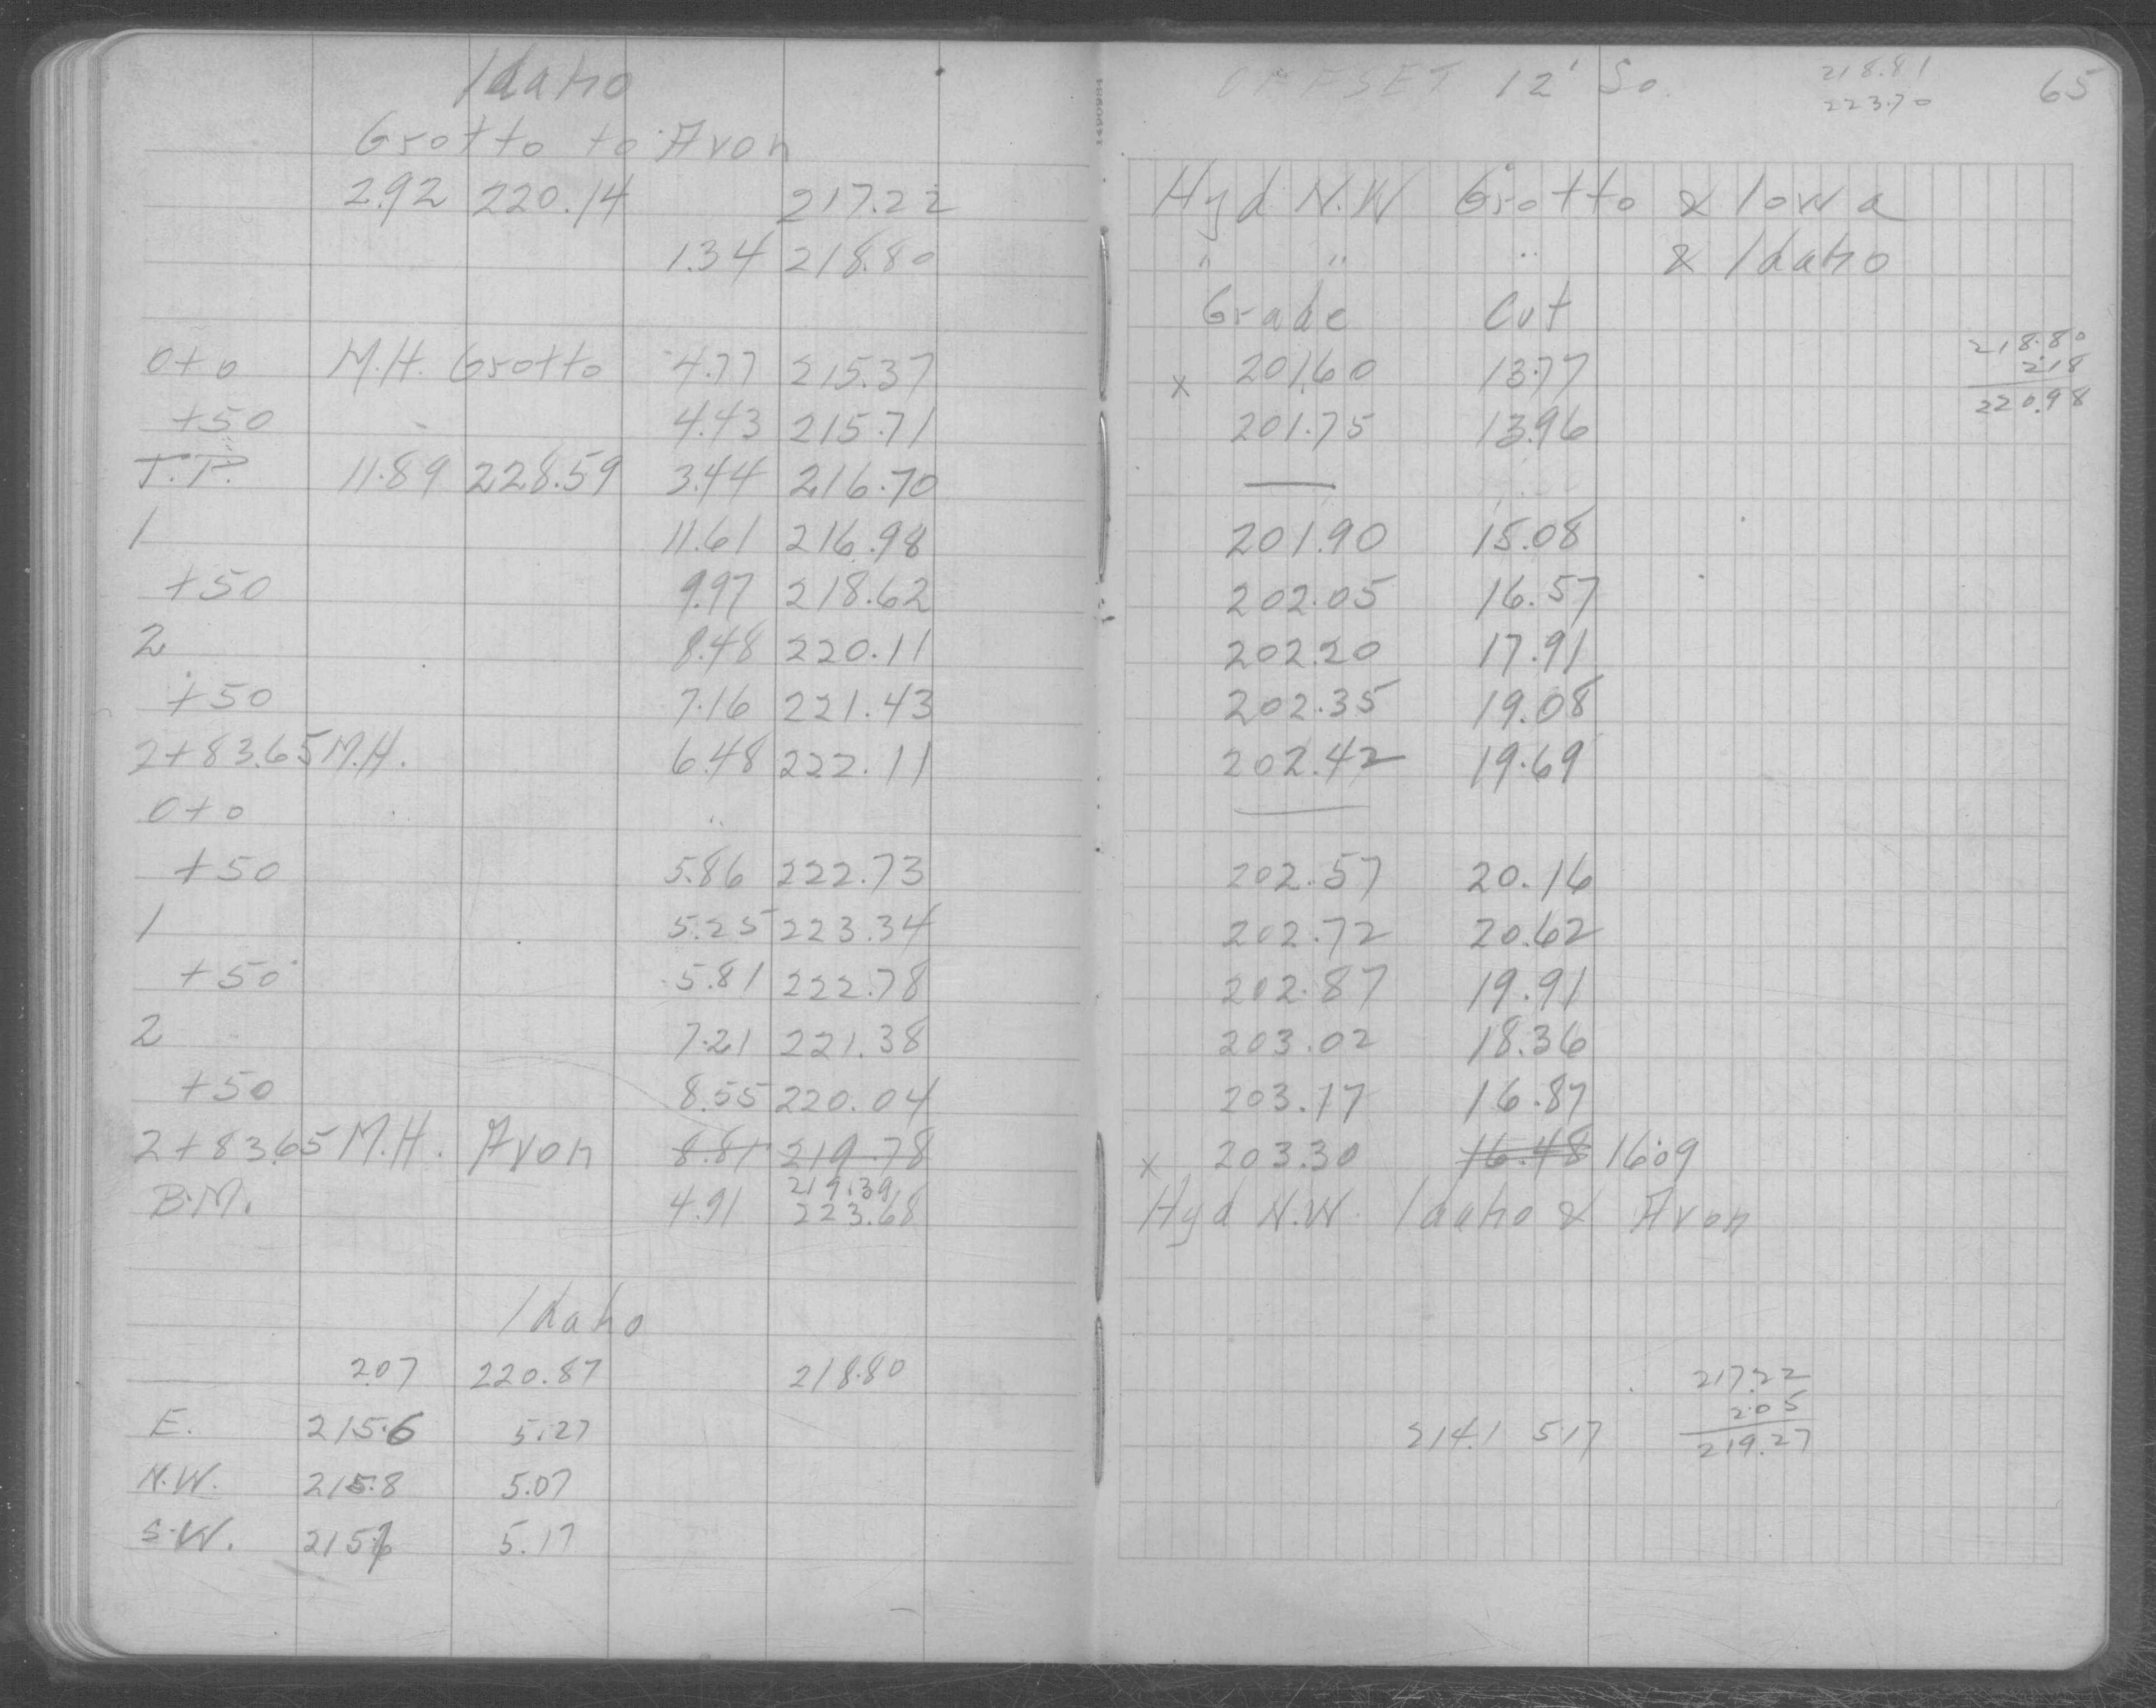 Idaho
Grotto to Avon
2.92 220.14 217.22
1.34 218.80
0+0 M.H. Grotto 4.77 215.37
+50 4.43 215.71
T.P. 11.89 228.59 3.44 216.70
1 11.61 216.98
+50 9.97 218.62
2 8.48 220.11
+50 7.16 221.43
2+83.65 M.H. 6.48 222.11
0+0 "
+50 5.86 222.73
1 5.25 223.34
+50 5.81 222.78
2 7.21 221.38
+50 8.55 220.04
2+83.65 M.H. Avon 8.81 219.78
219.39
B.M. 4.91 223.68
Idaho
2.07 220.87 218.80
E. 215.6 5.27
N.W. 215.8 5.07
S.W. 5.17
OFFSET 12' So. 218.81 65
223.70
Hyd N.W Grotto & Iowa
" " " & Idaho
Grade Cut
218.80
2.18
220.98
x 201.60 13.77
201.75 13.96
201.90 15.08
202.05 16.57
202.20 17.91
202.35 19.08
202.42 19.69
202.57 20.16
202.72 20.62
202.87 19.91
203.02 18.36
203.17 16.87
x 203.30 16.48 16.09
Hyd N.W. Idaho & Avon
217.22
2.05
219.27
214.1 5.17